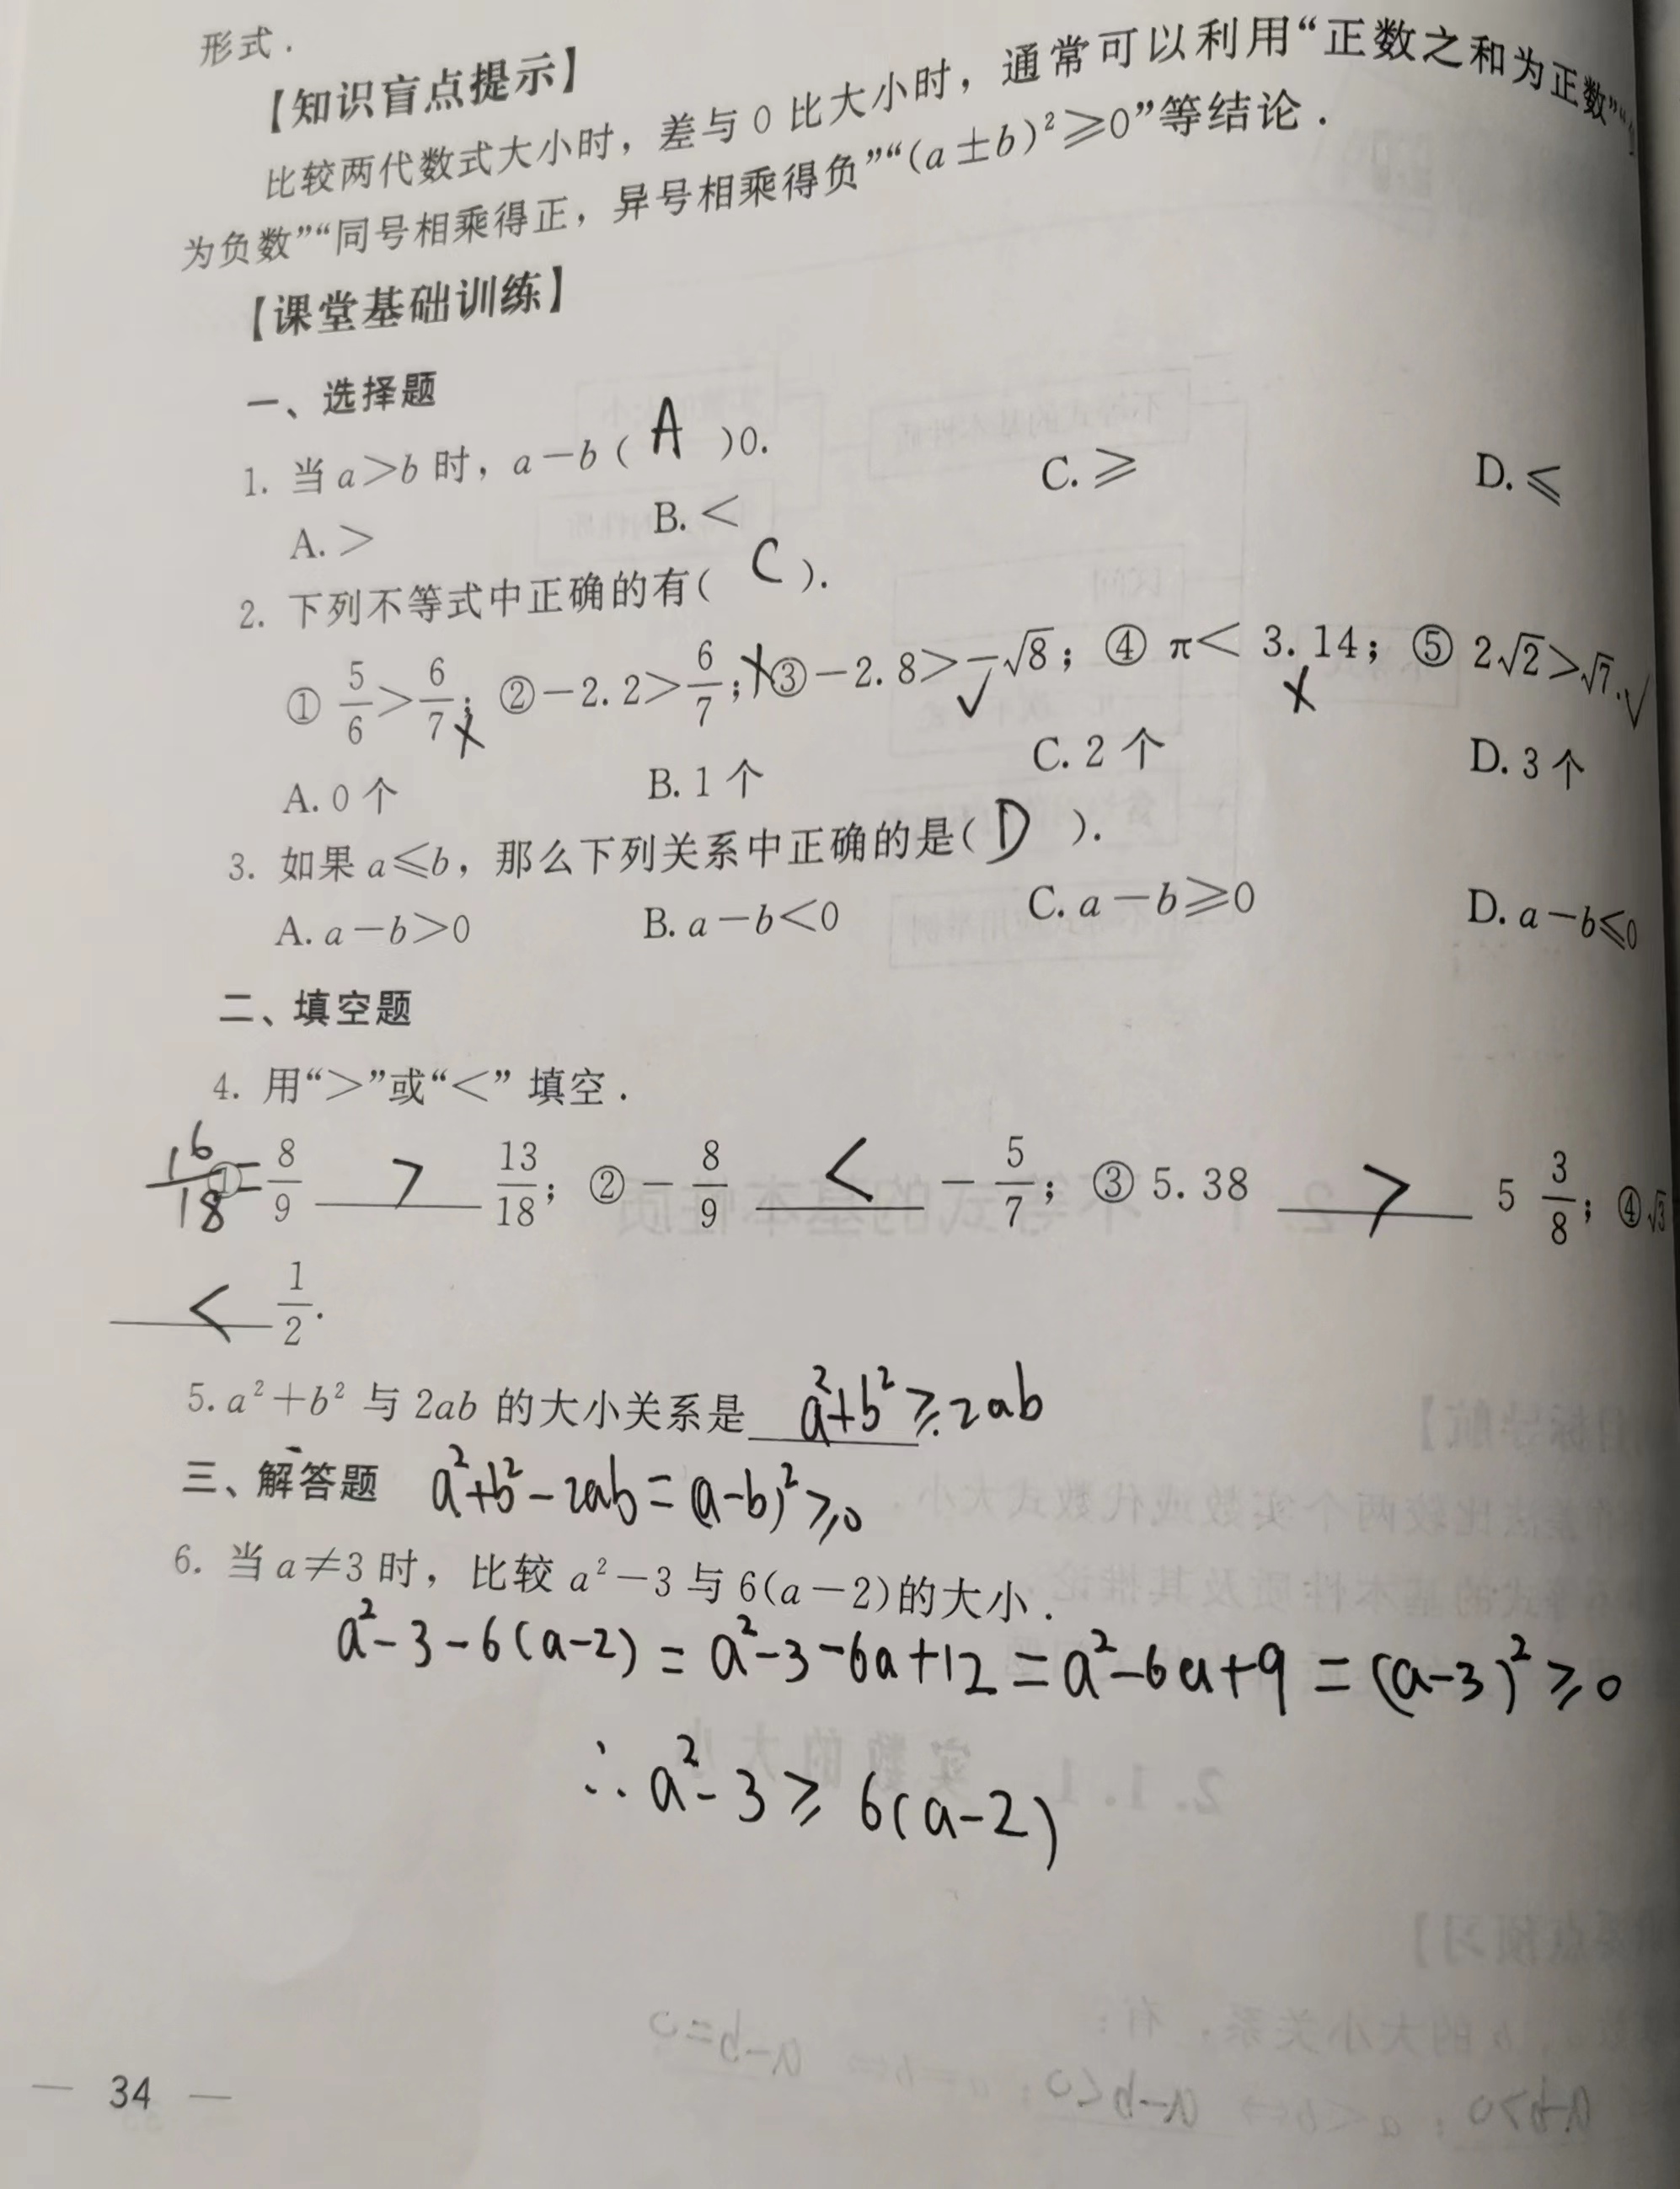 形式.
【知识盲点提示】
比较两代数式大小时，差与 0 比大小时，通常可以利用“正数之和为正数”“
为负数”“同号相乘得正，异号相乘得负”“(a±b)²≥0”等结论.
【课堂基础训练】
一、选择题
1. 当 a>b 时，a-b( A )0.
A. > B. < C. ≥ D. ≤
2. 下列不等式中正确的有( C ).
① 5/6>6/7; × ②-2.2>6/7; × ③-2.8>-√8; √ ④ π< 3.14; × ⑤ 2√2>√7. √
A. 0 个 B. 1 个 C. 2 个 D. 3 个
3. 如果 a≤b，那么下列关系中正确的是( D ).
A. a-b>0 B. a-b<0 C. a-b≥0 D. a-b≤0
二、填空题
4. 用“>”或“<” 填空.
16/18= ① 8/9 > 13/18; ②-8/9 < -5/7; ③ 5.38 > 5 3/8; ④
< 1/2.
5. a²+b² 与 2ab 的大小关系是 a²+b²≥2ab.
三、解答题 a²+b²-2ab=(a-b)²≥0
6. 当 a≠3 时，比较 a²-3 与 6(a-2)的大小.
a²-3-6(a-2)=a²-3-6a+12=a²-6a+9=(a-3)²≥0
∴a²-3≥6(a-2)
— 34 —